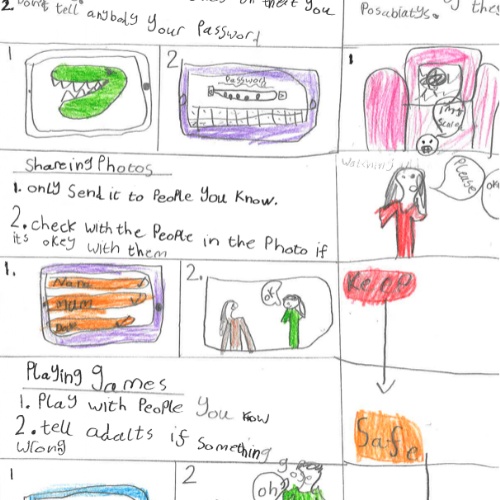 2. Don't tell anybody your Password
Posabiatys.
1
2.
Password
1
im
Scard
Shareing Photos
1. only Send it to People You Know.
2. check with the People in the Photo if
it's okey with them
Please
oh
1.
Nana
mum
Dad
2.
ok
Keep
Safe
Playing games
1. Play with People You Know
2. tell adalts if Something
wrong
1
2
oh